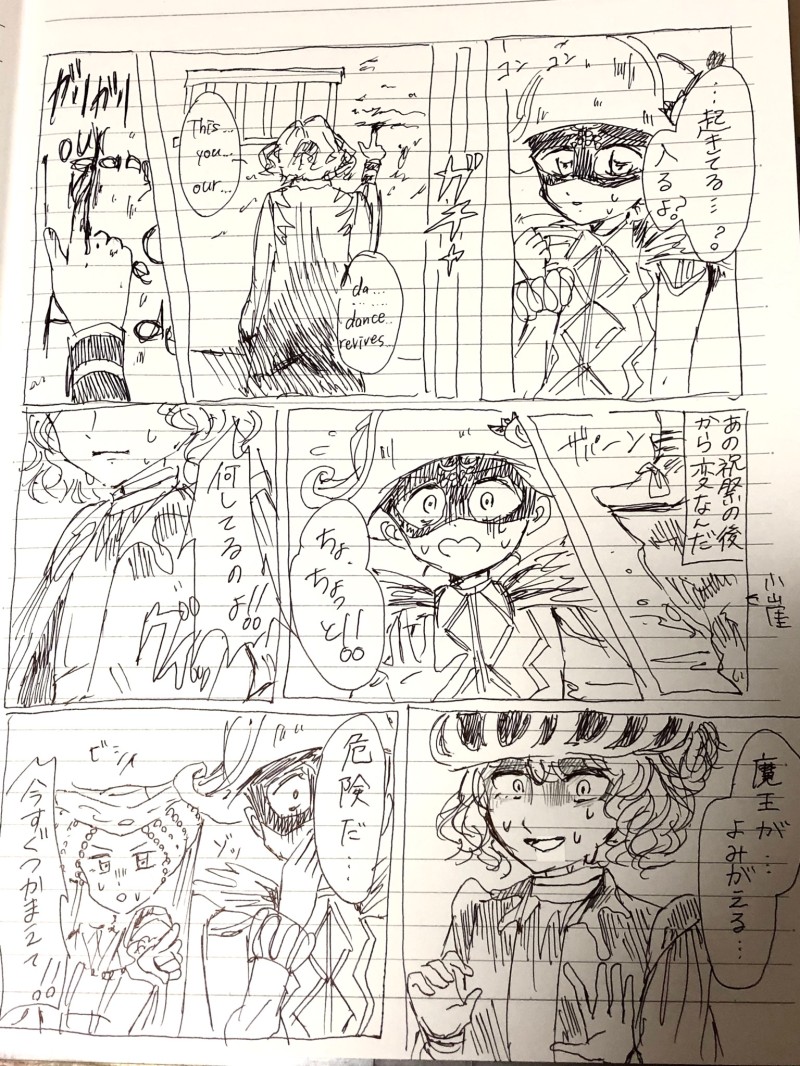 コン
コン
…起きてる…?
入るよ?
ガチャ
This...
you...
our...
da...
dance
revives
ガリガリ
our
あの祝祭の後
から変なんだ
ザバーン
ちょ、
ちょっ
と!!
何してるのよ!!
魔王が…
よみがえる…
危険だ…
ゾッ
ビシィ
今すぐつかまえて!!